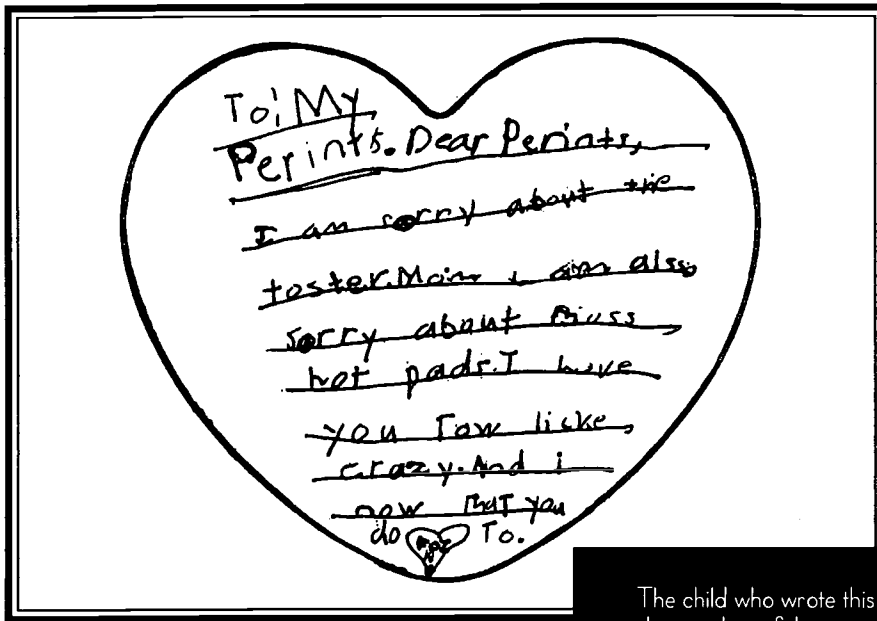 To: My
Perints. Dear Perints,
I am sorry about the
toster. Mom i am also
sorry about
hot pads. I love
you Tow licke
crazy. And i
now that you
do To.
The child who wrote this